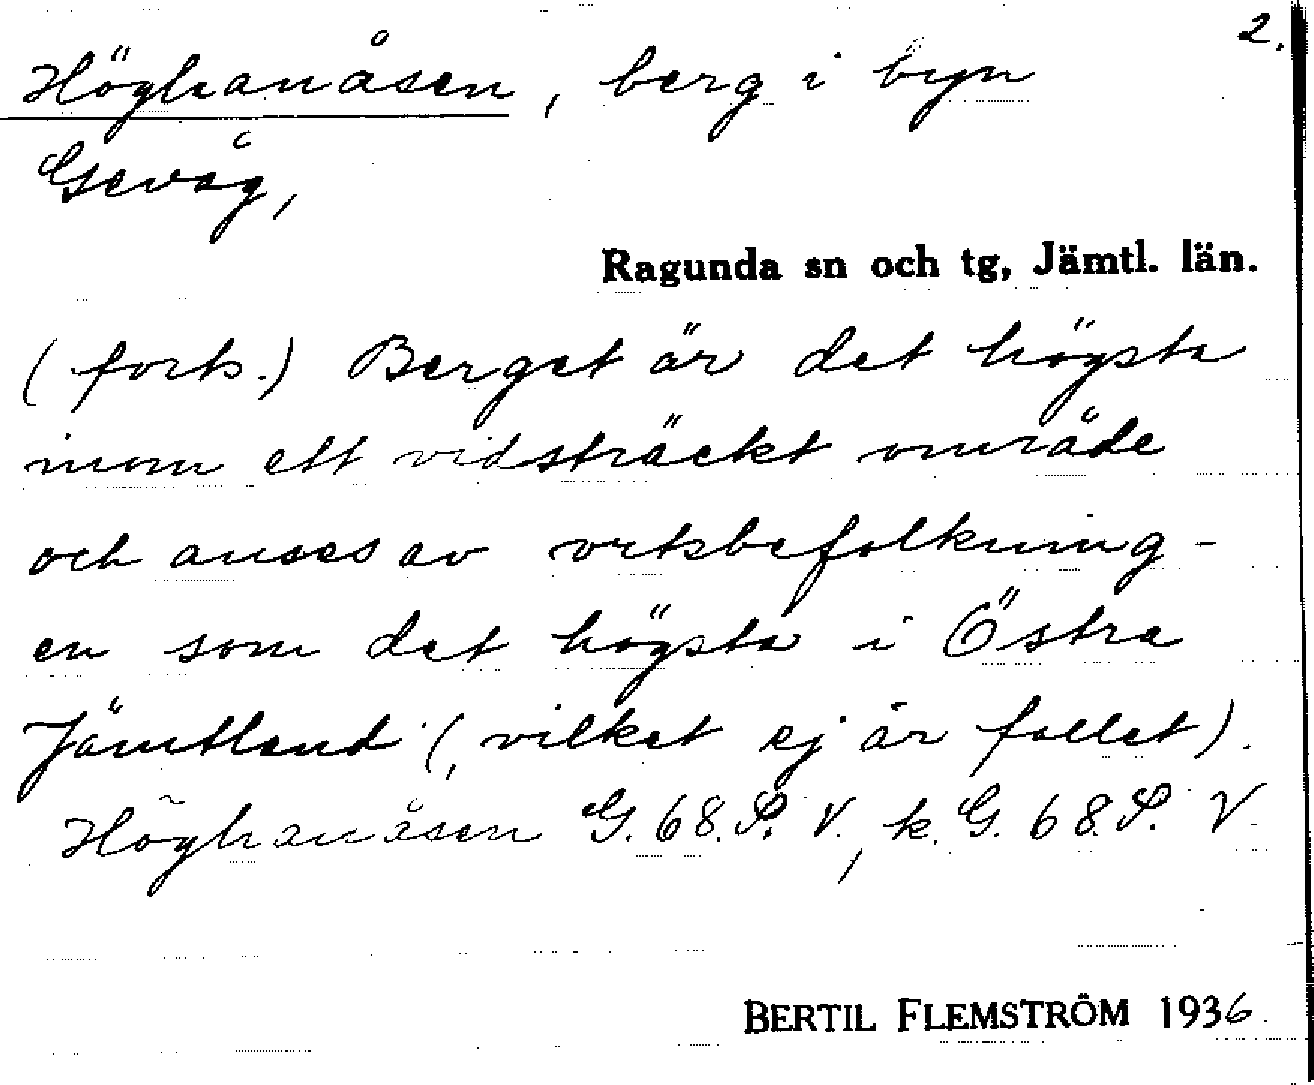 2.
Höghanåsen, berg i byn
Gevåg,
Ragunda sn och tg, Jämtl. län.
(forts.) Berget är det högsta
inom ett vidsträckt område
och anses av ortsbefolkning-
en som det högsta i Östra
Jämtland (vilket ej är fallet).
Höghanåsen G. 68. S. V., k. G. 68. S. V.
BERTIL FLEMSTRÖM 1936.